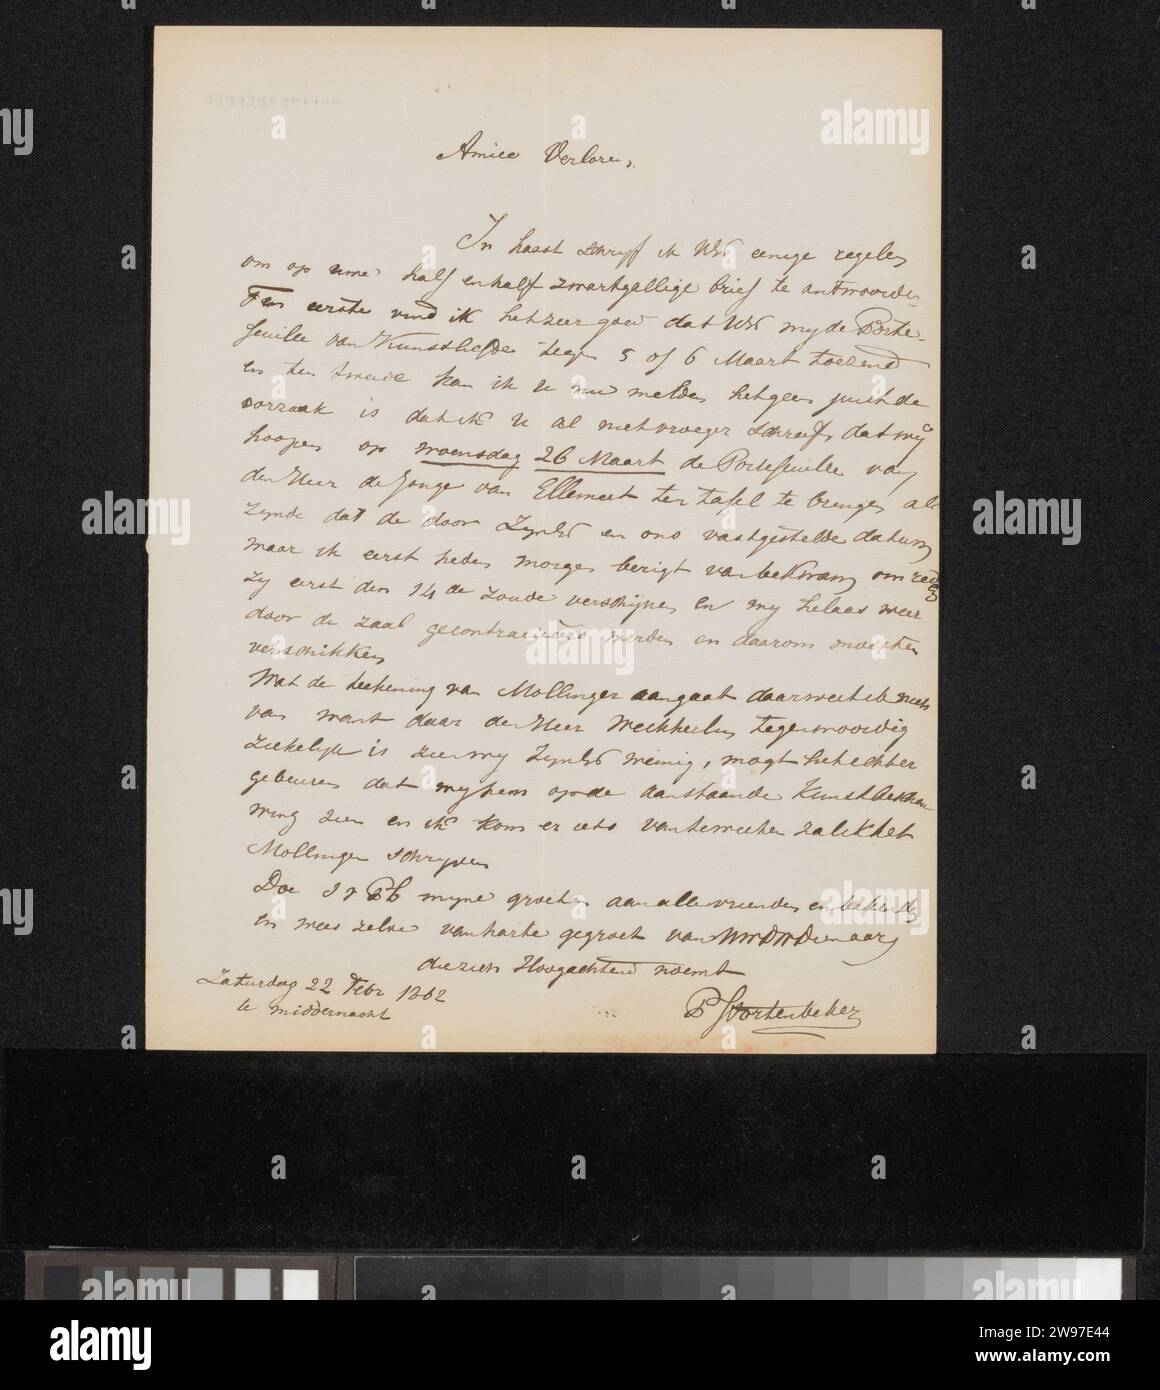 Amice Verloren,
In haast schryf ik UEd eenige regelen
om op uwe half en half zwartgallige brief te antwoorden
Ten eerste vind ik het zeer goed dat UEd my de Porte-
feuille van Kunstliefde tegen 5 of 6 Maart toezend
en ten tweede kan ik u nu melden hetgeen juist de
oorzaak is dat ik u al niet vroeger schreef, dat wy
hoopen op woensdag 26 Maart de Portefeuille van
den Heer de Jonge van Ellemeet ter tafel te brengen als
zynde dat de door ZynEd en ons vastgestelde datum
maar ik eerst heden morgen berigt van bekwam om reden
zy eerst den 14de zoude verschijnen en my helaas weer
door de zaal gecontrarieerd werden en daarom moesten
verschikken
Wat de teekening van Mollinger aangaat daar weet ik niets
van want daar den Heer tegenwoordig
ziekelijk is zien wy ZynEd weinig, mogt het echter
gebeuren dat wy hem op de aanstaande Kunstbeschou
wing zien en ik kom er iets van te weeten zal ik het
Mollinger schryven
Doe myne groeten aan alle vrienden en bekenden
en wees zelve van harte gegroet van UwEdDWDienaar
die zich Hoogachtend noemt
P Stortenbeker
Zaturdag 22 Febr 1862
te middernacht
alamy
alamy
Image ID: 2W97E44
www.alamy.com